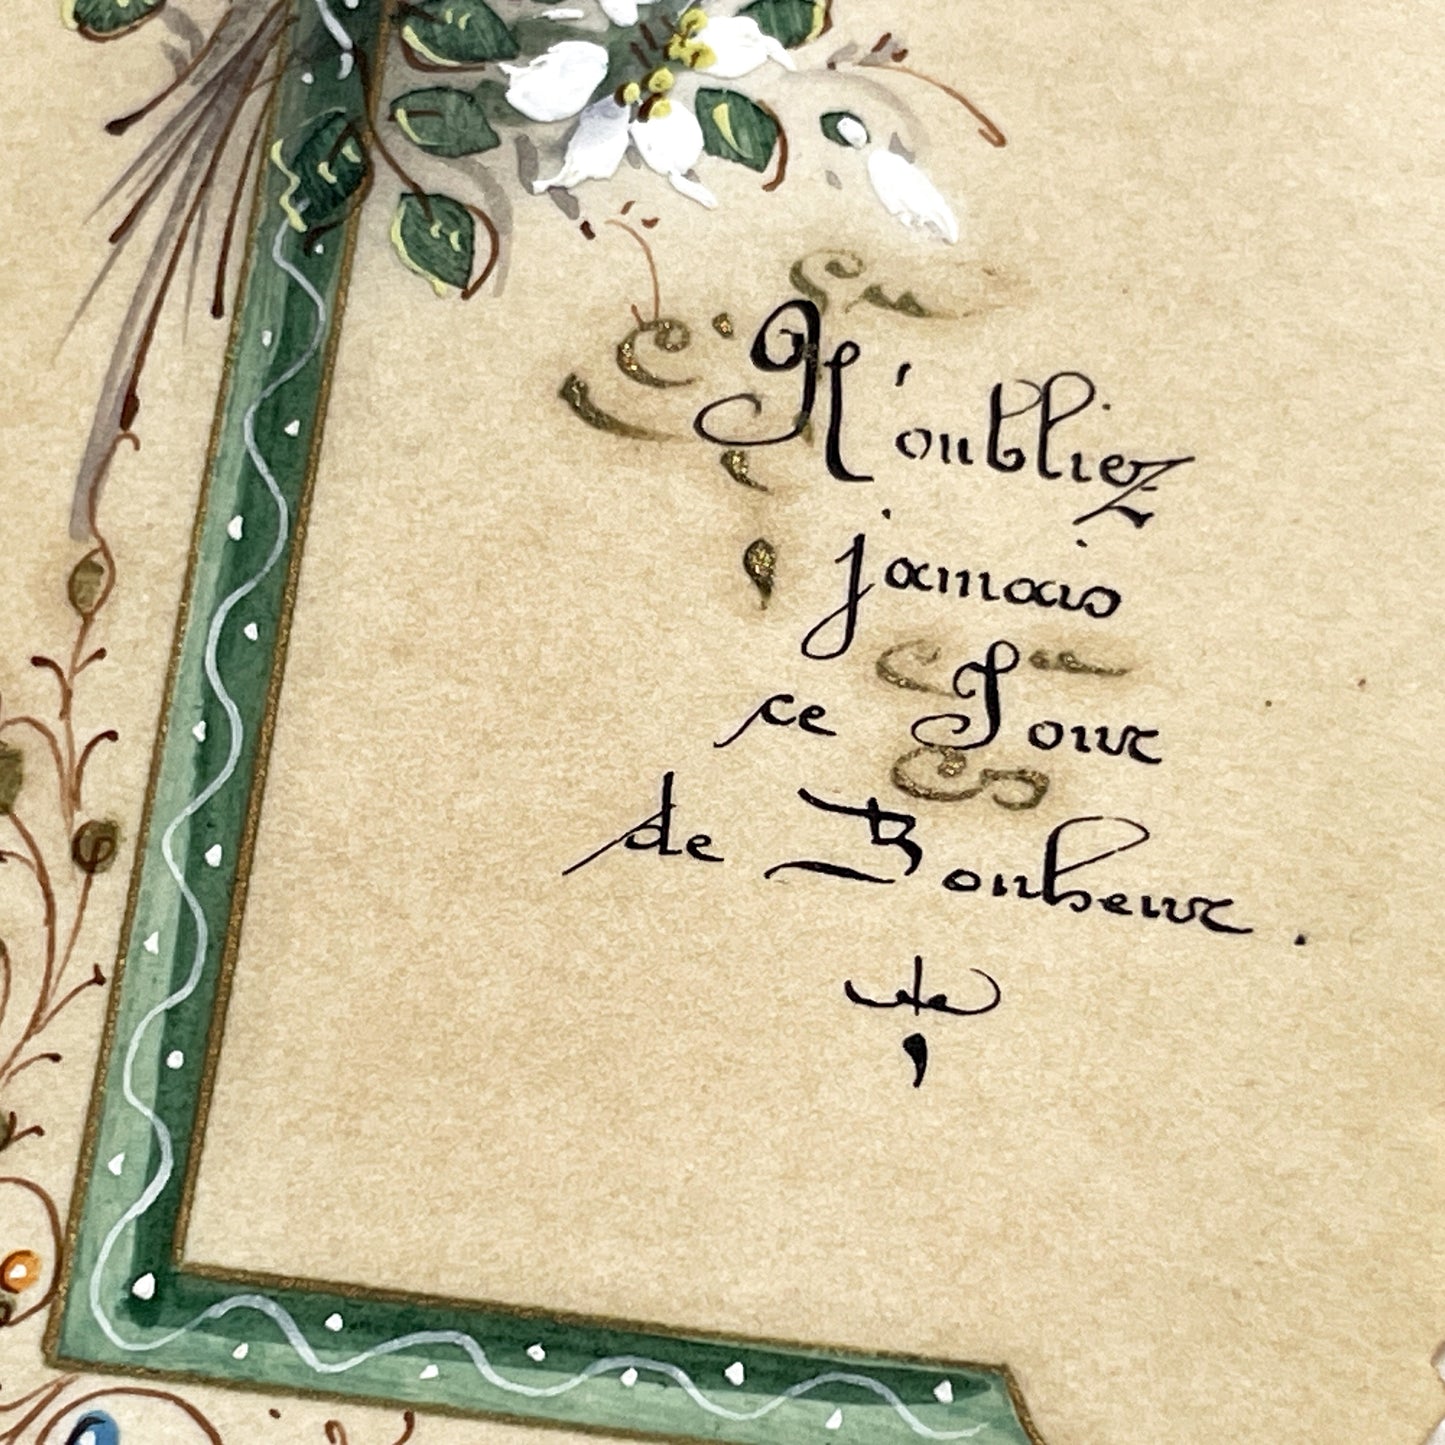 N'oubliez
jamais
ce Jour
de Bonheur.